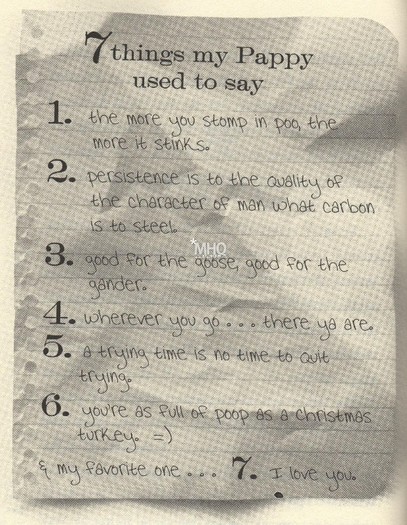 7 things my Pappy
used to say
1. the more you stomp in poo, the
more it stinks.
2. persistence is to the quality of
the character of man what carbon
is to steel.
*MHO
3. good for the goose, good for the
gander.
4. wherever you go . . . there ya are.
5. a trying time is no time to quit
trying.
6. you're as full of poop as a christmas
turkey. =)
& my favorite one . . . 7. I love you.